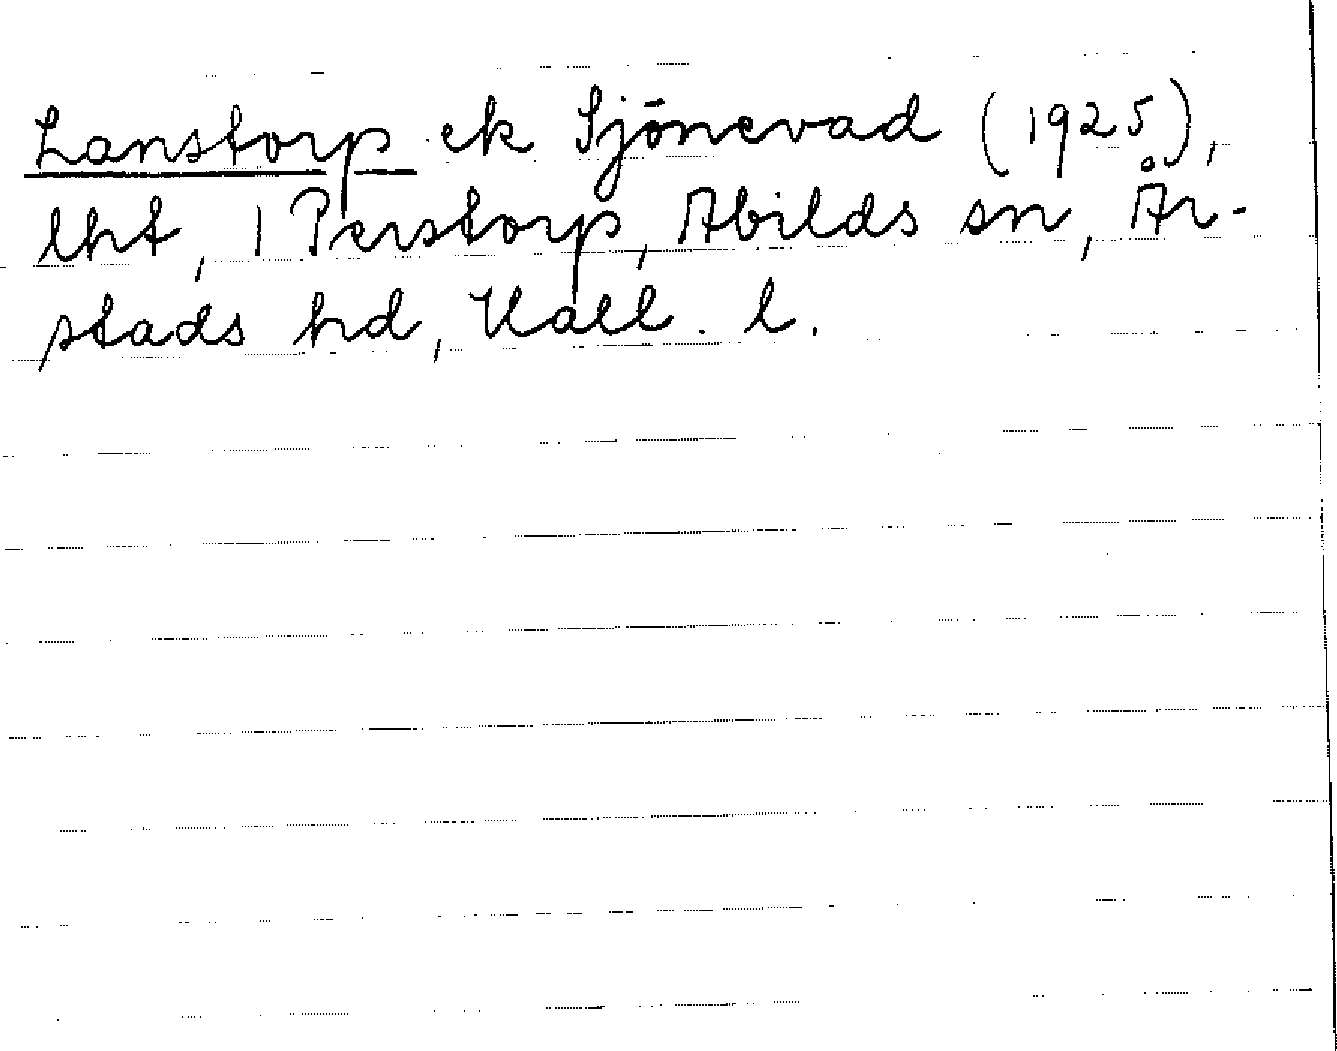 Lanstorp ek Sjönevad (1925),
lht, 1 Perstorp, Abilds sn, År-
stads hd, Hall. l.